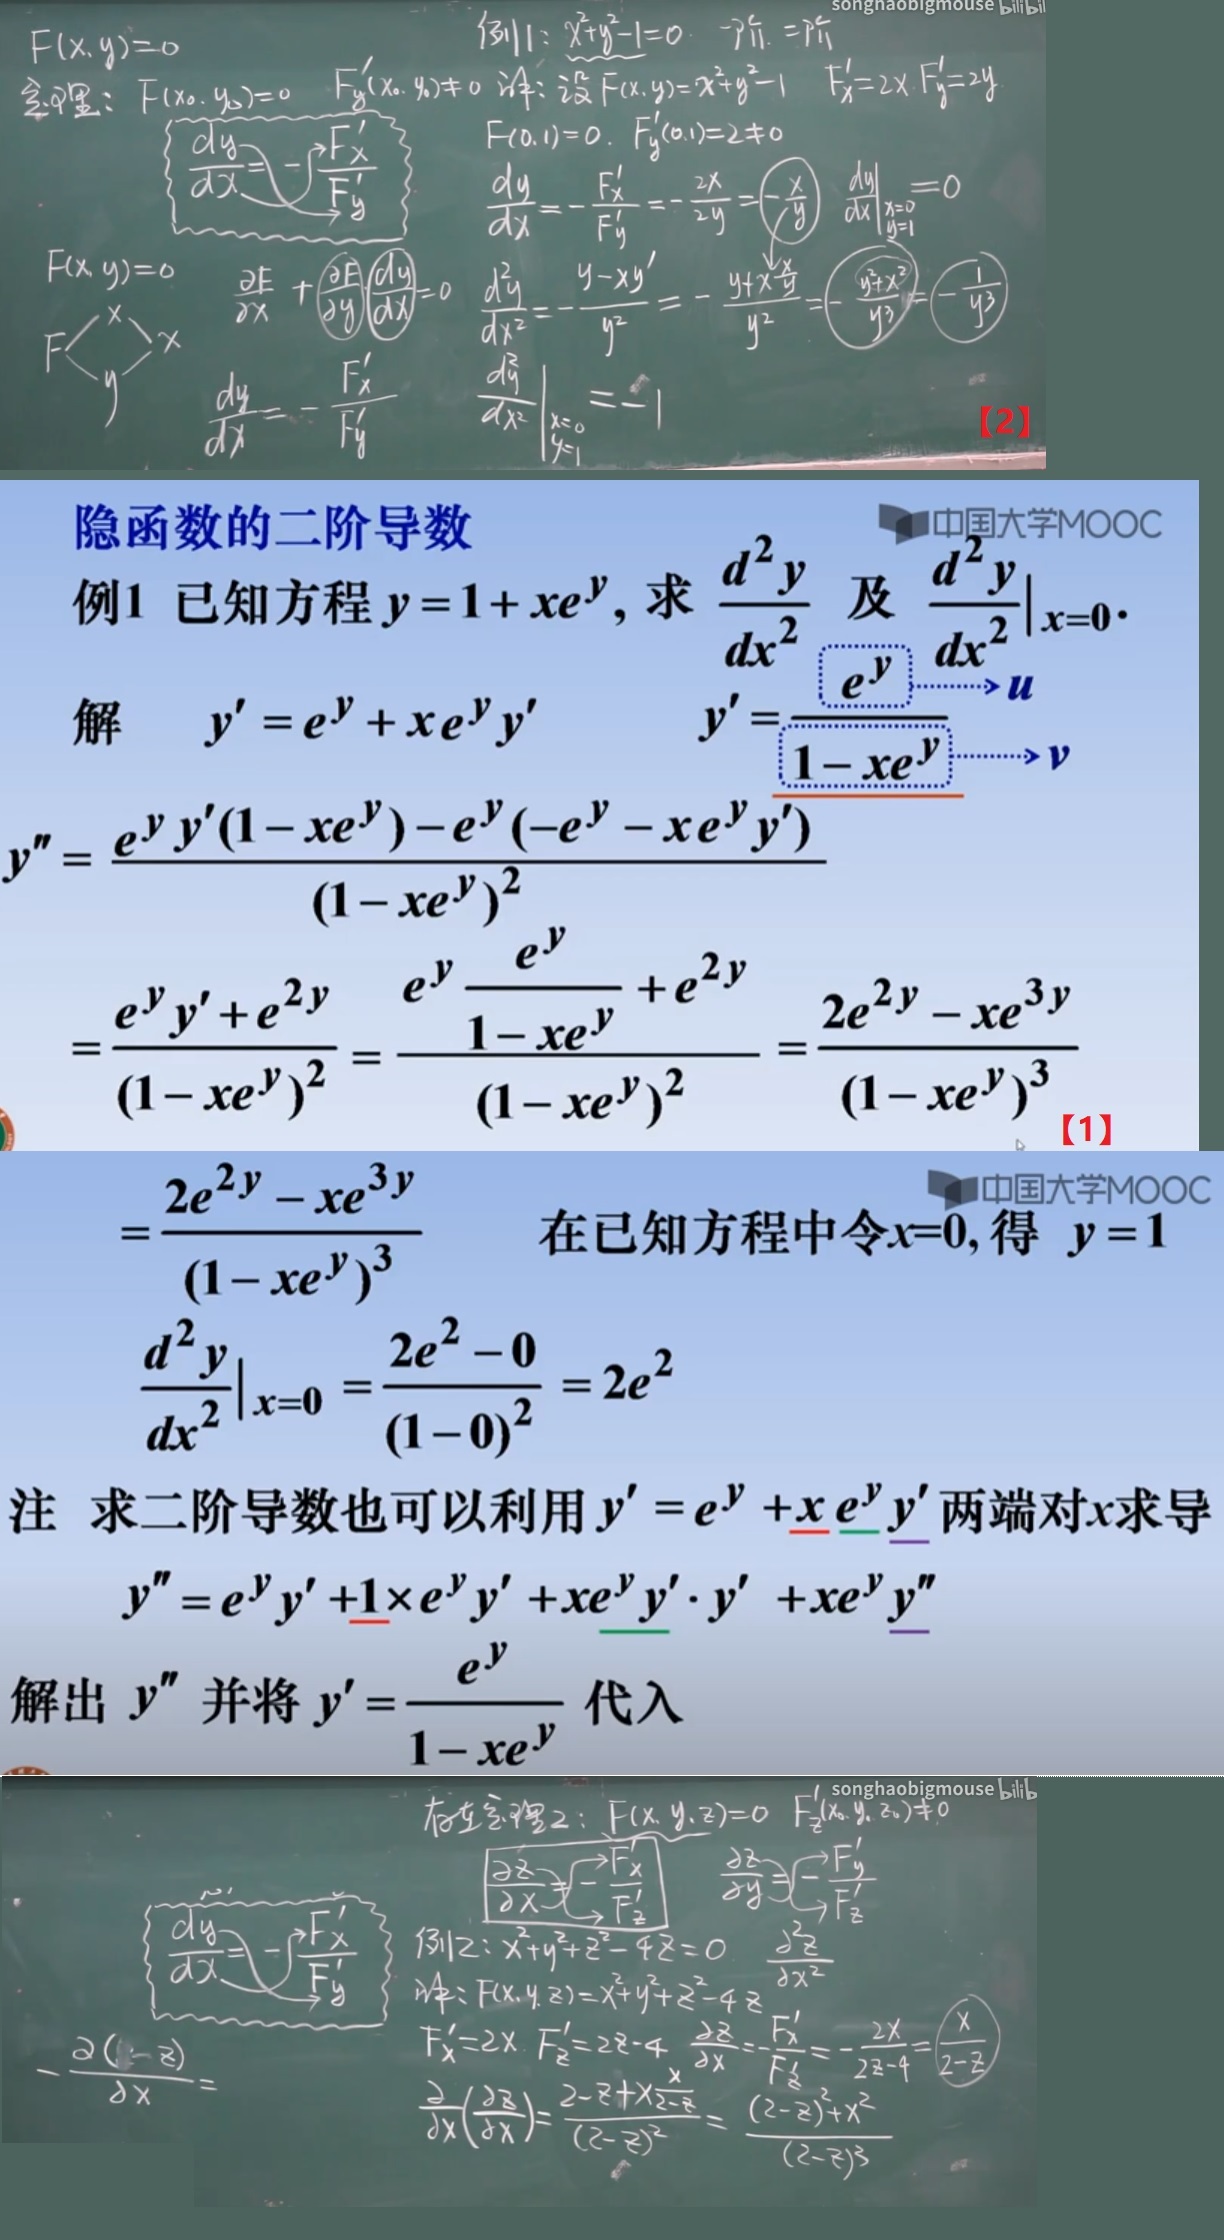 songhaobigmouse bilibil
F(x,y)=0
例1: x²+y²-1=0. 一阶. 二阶
定理: F(x₀,y₀)=0 F'y(x₀,y₀)≠0
解: 设F(x,y)=x²+y²-1 F'x=2x. F'y=2y
F(0,1)=0. F'y(0,1)=2≠0
dy/dx = -F'x/F'y
dy/dx = -F'x/F'y = -2x/2y = -x/y dy/dx|x=0 y=1 =0
F(x,y)=0 ∂F/∂x + ∂F/∂y dy/dx =0
d²y/dx² = -(y-xy')/y² = -(y+x x/y)/y² = -(y²+x²)/y³ = -1/y³
F x x
y
dy/dx = -F'x/F'y
d²y/dx²|x=0 y=1 =-1
【2】
隐函数的二阶导数
中国大学MOOC
例1 已知方程 y=1+xe^y, 求 d²y/dx² 及 d²y/dx²|x=0.
解 y'=e^y+xe^y y' y'=e^y/(1-xe^y) u v
y''= (e^y y'(1-xe^y)-e^y(-e^y-xe^y y'))/(1-xe^y)²
= (e^y y'+e^{2y})/(1-xe^y)² = (e^y e^y/(1-xe^y) +e^{2y})/(1-xe^y)² = (2e^{2y}-xe^{3y})/(1-xe^y)³
【1】
中国大学MOOC
= (2e^{2y}-xe^{3y})/(1-xe^y)³ 在已知方程中令x=0, 得 y=1
d²y/dx²|x=0 = (2e²-0)/(1-0)² = 2e²
注 求二阶导数也可以利用 y'=e^y+xe^y y' 两端对x求导
y''=e^y y'+1×e^y y'+xe^y y'·y'+xe^y y''
解出 y'' 并将 y'= e^y/(1-xe^y) 代入
songhaobigmouse bilib
存在定理2: F(x,y,z)=0 F'z(x₀,y₀,z₀)≠0
∂z/∂x = -F'x/F'z ∂z/∂y = -F'y/F'z
dy/dx = -F'x/F'y
例2: x²+y²+z²-4z=0 ∂²z/∂x²
解: F(x,y,z)=x²+y²+z²-4z
F'x=2x. F'z=2z-4 ∂z/∂x=-F'x/F'z=-2x/(2z-4)=x/(2-z)
∂/∂x(∂z/∂x)= (2-z+x x/(2-z))/(2-z)² = ((2-z)²+x²)/(2-z)³